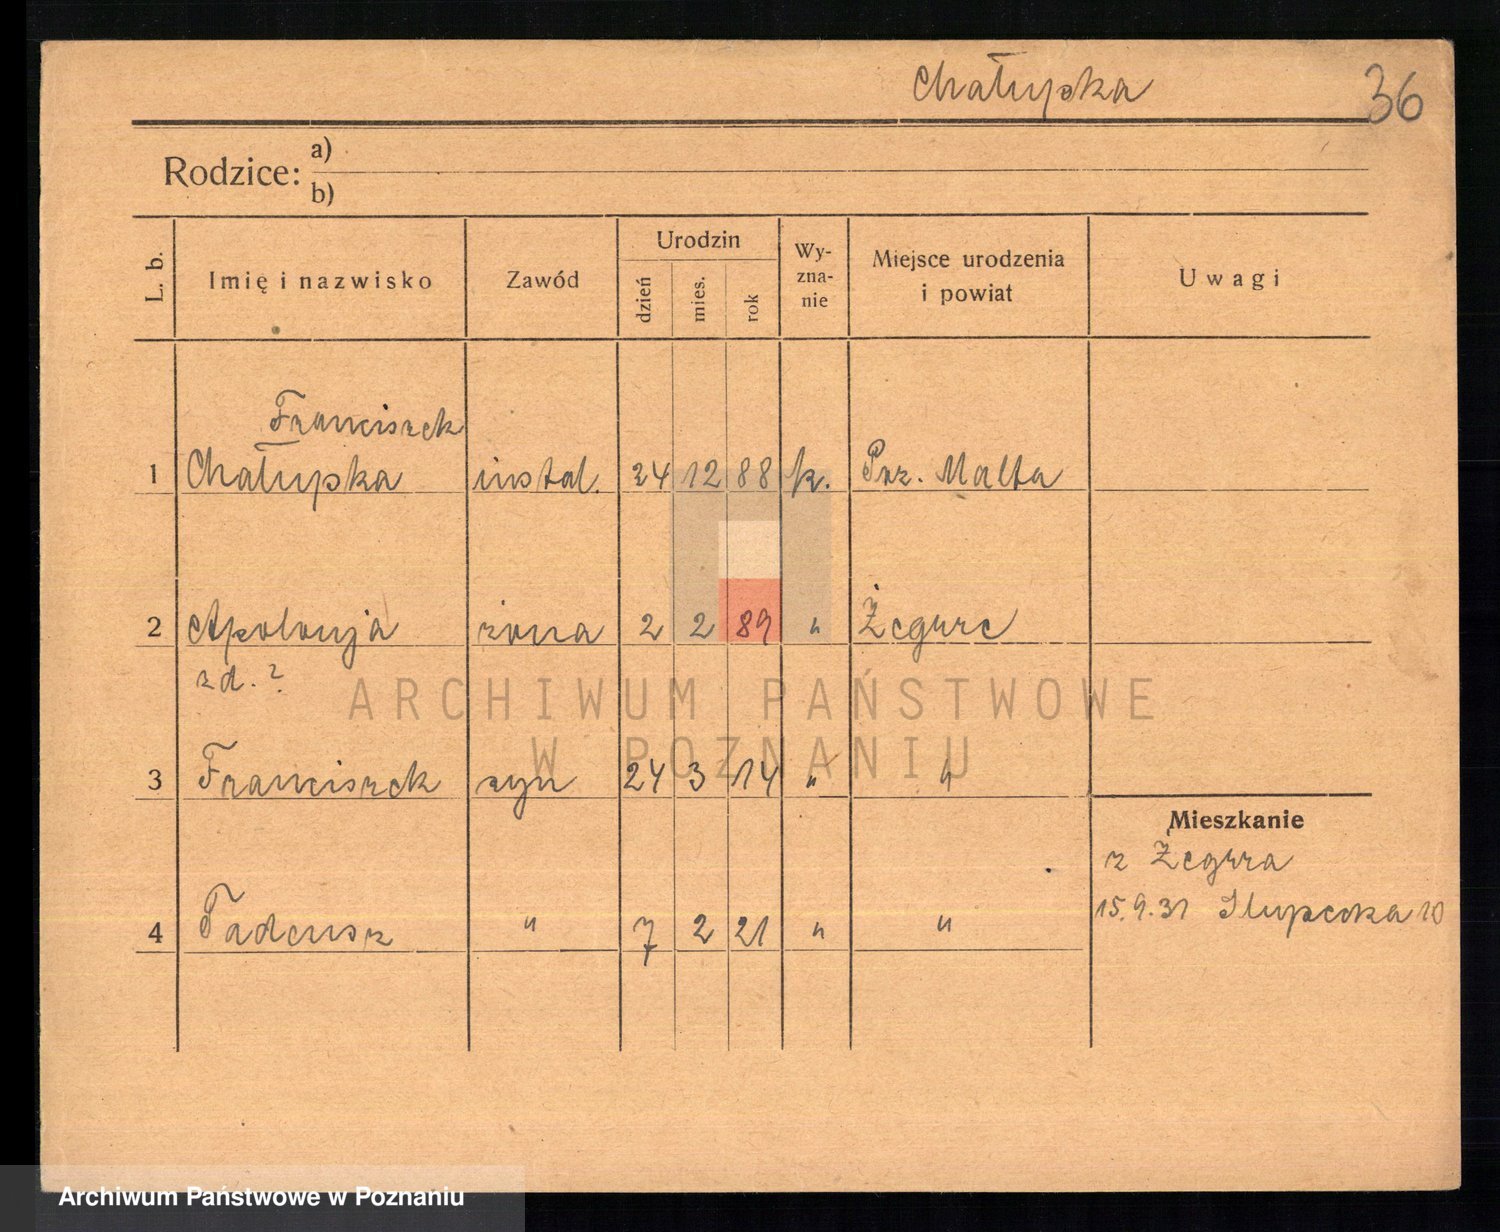 Chałupka 36
Rodzice: a)
b)
L. b. Imię i nazwisko Zawód Urodzin dzień mies. rok Wy-zna-nie Miejsce urodzenia i powiat Uwagi
Franciszek
1 Chałupka instal. 24 12 88 k. Prz. Malta
2 Apolonja żona 2 2 89 " Żegrze
zd. ?
ARCHIWUM PAŃSTWOWE
W POZNANIU
3 Franciszek syn 24 3 14 " "
Mieszkanie
z Żegrza
15.9.31 Słupecka 10
4 Tadeusz " 7 2 21 " "
Archiwum Państwowe w Poznaniu